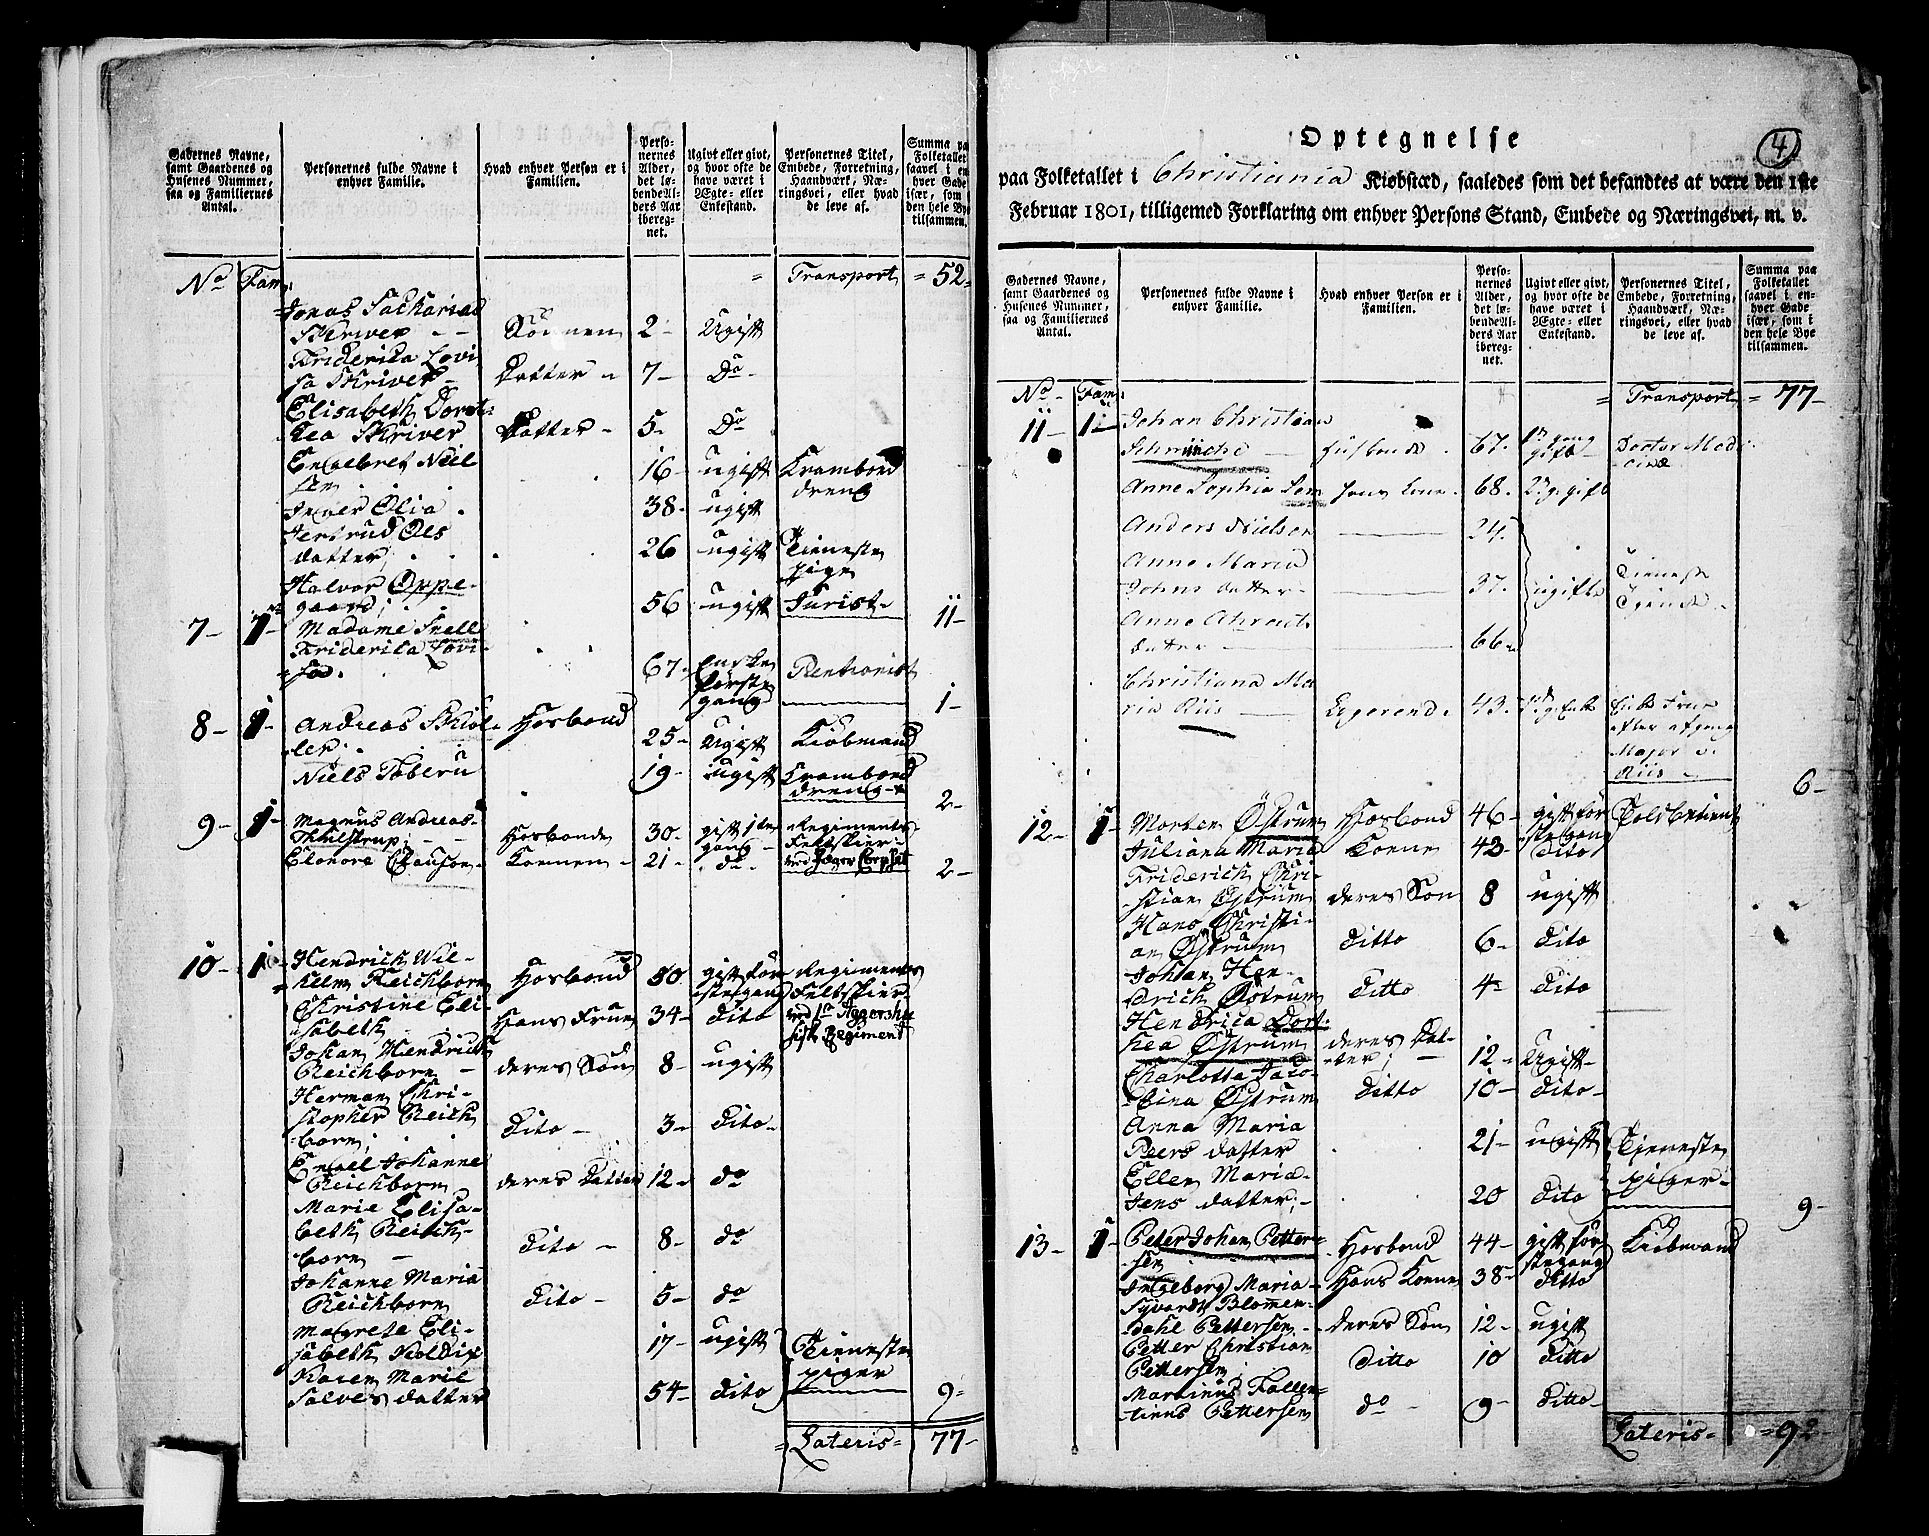 Gadernes Navne,
samt Gaardenes og
Husenes Nummer,
saa og Familiernes
Antal.
Personernes fulde Navne i
enhver Familie.
Hvad enhver Person er i
Familien.
Perso-
nernes
Alder,
det lø-
bende Al-
ders Aar
ibereg-
net.
Ugivt eller givt,
og hvor ofte de
have været i
Ægte- eller
Enkestand.
Personernes Titel,
Embede, Forretning,
Haandværk, Næ-
ringsvei, eller hvad
de leve af.
Summa paa
Folketallet
saavel i en-
hver Gade
især, som i
den hele Bye
tilsammen.
No Fam: = Transport = 52-
Jonas Sacharias
Skriver - - Sønnen 2- Ugift
Friderica Lovi-
sa Skriver - Datter - 7- Do
Elisabeth Doret-
hea Skriver Datter - 5- Do
Engebret Niel
sen 16- ugift Krambod
dreng
Inger Olia 38- ugift
Jertrud Ols
datter, 26 ugift Tieneste
pige
Halvor Oppe-
gaard; 56 ugift Jurist- 11-
7- 1- Madame Snell
Friderica Lovi-
sa. 67- Encke
første
gang Pentionist 1-
8- 1- Andreas Skiøl-
ler Hosbond 25- Ugift Kiøbmand
Niels Taberu 19- ugift Krambod
dreng- 2-
9- 1- Magnus Andreas-
Thulstrup; - Hosbonde 30- gift 1te
gang - Regiments-
Feltskier-
Elonora Clauson- Konen - 21- do ved Jæger Corpset 2-
10- 1- Hendrich Wil-
helm Reichborn Hosbond 50 gift før
stegang Regiments
Feltskier-
Christine Eli-
sabeth Hans Frue 34- dito ved 1te Aggershu
siske Regiment
Johan Hendrich
Reichborn - deres Søn 8- ugift
Herman Chri-
stopher Reich
born; dito - 3- dito-
Engel Johanne
Reichborn deres Datter 12- do
Marie Elisa-
beth Reich-
born - dito - 8- do
Johanne Maria
Reichborn dito - 5- do
Magrete Eli-
sabeth Koldix 17- ugift Tieneste
piger
Karen Marie
Salves datter 54- dito 9-
= Lateris- 77-
4
Optegnelse
paa Folketallet i Christiania Kiøbstæd, saaledes som det befandtes at være den 1ste
Februar 1801, tilligemed Forklaring om enhver Persons Stand, Embede og Næringsvei, m. v.
Gadernes Navne,
samt Gaardenes og
Husenes Nummer,
saa og Familiernes
Antal.
Personernes fulde Navne i
enhver Familie.
Hvad enhver Person er i
Familien.
Perso-
nernes
Alder,
det lø-
bende Al-
ders Aar
ibereg-
net.
Ugivt eller givt,
og hvor ofte de
have været i
Ægte- eller
Enkestand.
Personernes Titel,
Embede, Forretning,
Haandværk, Næ-
ringsvei, eller hvad
de leve af.
Summa paa
Folketallet
saavel i en-
hver Gade
især, som i
den hele Bye
tilsammen.
No- Fam: = Transport = 77-
11- 1- Johan Christian
Schmiche Husbonde 67. 1te gang
gift Doctor Medi
cinæ
Anne Sophia hans Kone 68. 2g. gift
Anders Nielsen 24.
Anne Maria
Johns datter - 37. ugifte Tieneste
Tyende
Anne Ahrents
datter 66
Christiana Ma
ria Riis Logerende 43. 1g. Enke Enke Frue
efter afgang
Major v.
Riis - 6-
12- 1- Morten Östrum Hosbond 46- gift før
stegang Politbetient
Juliana Maria Konen 43- dito
Friderich Chri-
stian Östrum deres Søn 8 ugift
Hans Christi-
an Östrum ditto 6- dito
Johan Hen-
drich Östrum ditto 4- dito
Hendrica Dort-
hea Östrum deres Dat-
ter; - 12- Ugift-
Charlotta Jaco-
bina Östrum ditto 10- dito-
Anna Maria
Peers datter 21- ugift Tieneste
piger-
Ellen Maria
Jens datter;- 20 dito 9-
13- 1- Peter Johan Petter-
sen Hosbond 44- gift før
stegang Kiøbmand
Ingeborg Maria- Hans Konen 38- ditto
Syvardt Blomen-
dahl Pettersen- deres Søn 12- ugift
Petter Christian
Pettersen ditto 10 ditto
Martinus Fallen-
tinus Pettersen do - 9- ditto-
Lateris- = 92-